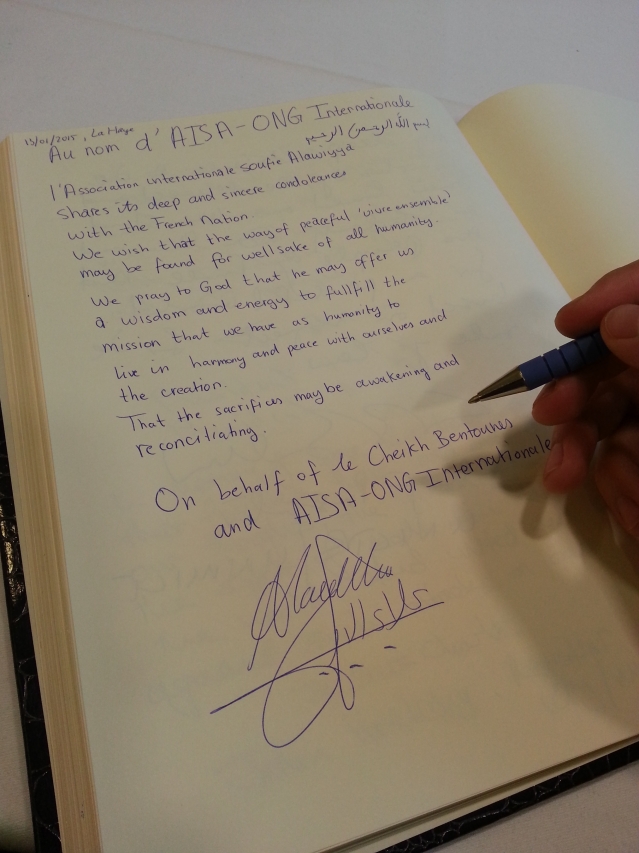 13/01/2015, La Haye
Au nom d' AISA-ONG Internationale
بسم الله الرحمن الرحيم
l'Association internationale soufie Alawiyya
shares its deep and sincere condoleances
with the French Nation.
We wish that the way of peaceful 'vivre ensemble'
may be found for wellsake of all humanity.
We pray to God that he may offer us
a wisdom and energy to fullfill the
mission that we have as humanity to
live in harmony and peace with ourselves and
the creation.
That the sacrifices maybe awakening and
reconciliating.
On behalf of le Cheikh Bentounes
and AISA-ONG Internationale